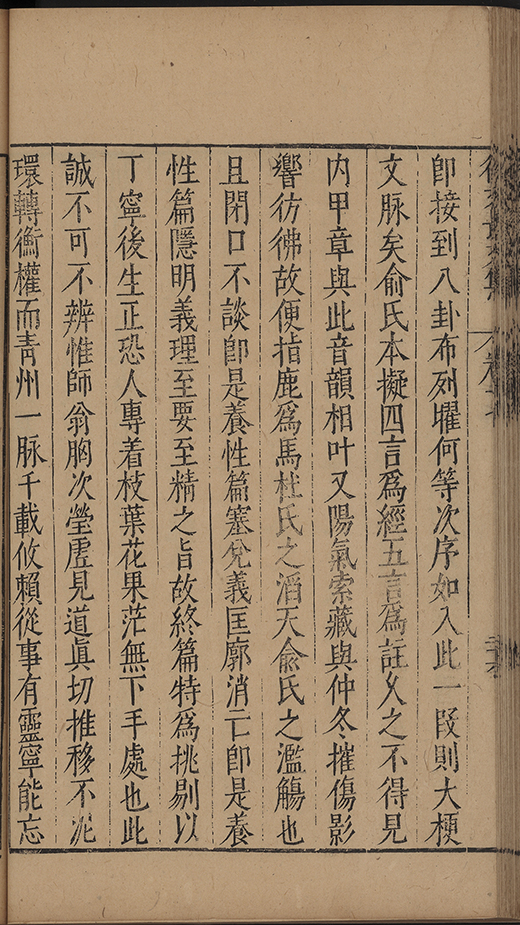 即接到八卦布列曜何等次序如入此一段則大梗
文脉矣俞氏本擬四言爲經五言爲註久之不得見
内甲章與此音韻相叶又陽氣索藏與仲冬摧傷影
響彷彿故便指鹿爲馬杜氏之滔天俞氏之濫觴也
且閉口不談卽是養性篇塞兌義匡廓消亡卽是養
性篇隱明義理至要至精之旨故終篇特爲挑剔以
丁寧後生正恐人專着枝葉花果茫無下手處也此
誠不可不辨惟師翁胸次瑩虛見道眞切推移不泥
環轉衡權而靑州一脉千載攸賴從事有靈寧能忘